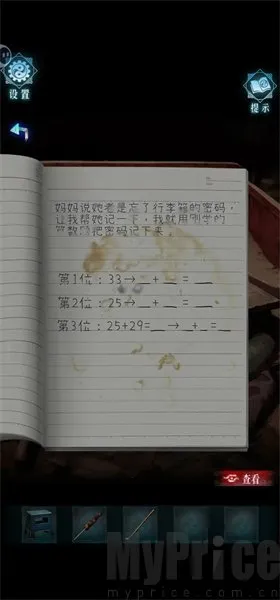 设置
提示
妈妈说她老是忘了行李箱的密码,
让我帮她记一下,我就用刚学的
算数题把密码记下来。
第1位:33→_+_=_
第2位:25→_+_=_
第3位:25+29=_→_+_=_
查看
MyPrice
www.myprice.com.cn